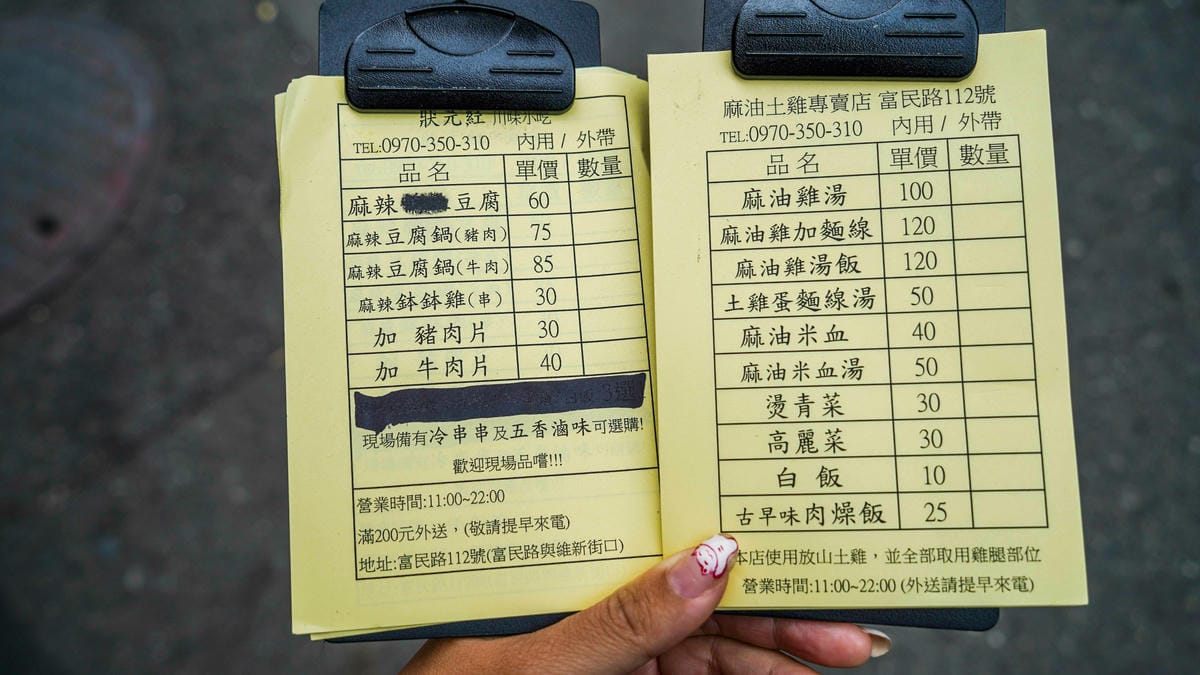 狀元紅 川味小吃
TEL:0970-350-310 內用 / 外帶
品名 單價 數量
麻辣 豆腐 60
麻辣豆腐鍋(豬肉) 75
麻辣豆腐鍋(牛肉) 85
麻辣缽缽雞(串) 30
加 豬肉片 30
加 牛肉片 40
3選
現場備有冷串串及五香滷味可選購!
歡迎現場品嚐!!!
營業時間:11:00~22:00
滿200元外送，(敬請提早來電)
地址:富民路112號(富民路與維新街口)
麻油土雞專賣店 富民路112號
TEL:0970-350-310 內用 / 外帶
品名 單價 數量
麻油雞湯 100
麻油雞加麵線 120
麻油雞湯飯 120
土雞蛋麵線湯 50
麻油米血 40
麻油米血湯 50
燙青菜 30
高麗菜 30
白飯 10
古早味肉燥飯 25
本店使用放山土雞，並全部取用雞腿部位
營業時間:11:00~22:00 (外送請提早來電)